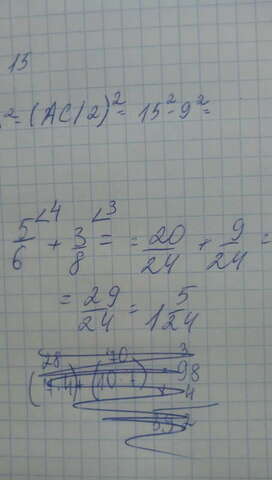 15
² = (AC/2)² = 15² - 9² =
5/6 ∠4 + 3/8 ∠3 = = 20/24 + 9/24 =
= 29/24 = 1 5/24